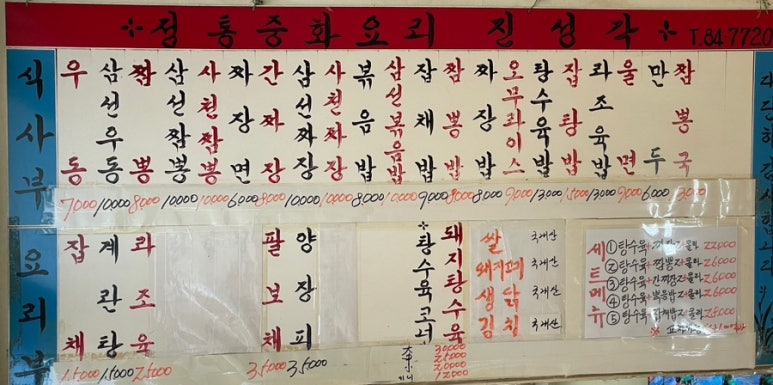 ※정통중화요리 진성각※ T.84-7720
식사부
우동 7000
삼선우동 10000
짬뽕 8000
삼선짬뽕 10000
사천짬뽕 10000
짜장면 6000
간짜장 8000
삼선짜장 10000
사천짜장 10000
볶음밥 8000
삼선볶음밥 10000
잡채밥 9000
짬뽕밥
짜장밥 8000
오무라이스 9000
탕수육밥 13000
잡탕밥 15000
라조육밥 13000
울면
만두 6000
짬뽕국 3000
요리부
잡채 15000
계란탕 15000
라조육 25000
팔보채 35000
양장피 35000
돼지탕수육
※탕수육
大 30000
中 25000
小 20000
미니 12000
쌀 국내산
돼지고기 국내산
생닭 국내산
김치 국내산
세트메뉴
① 탕수육+
② 탕수육+짬뽕2 26000
③ 탕수육+간짜장2 26000
④ 탕수육+볶음밥2 26000
⑤ 탕수육+잡채밥2